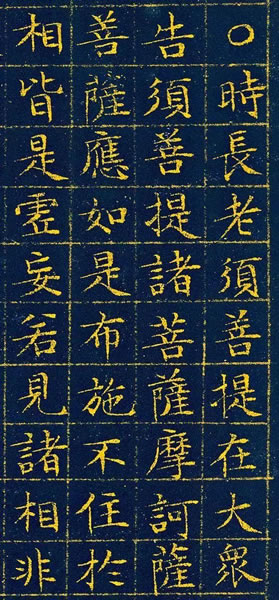 ○時長老須善提在大眾
告須善提諸菩薩摩訶薩
善薩應如是布施不住於
相皆是虛妄若見諸相非